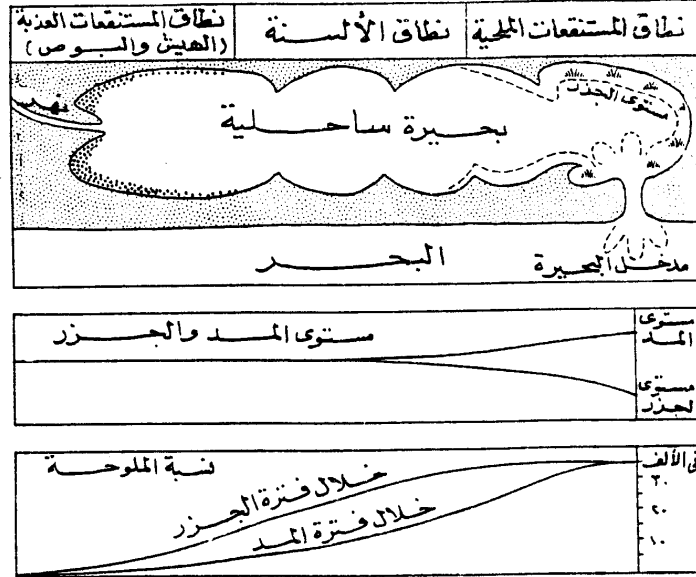 نطاق المستنقعات الملحية
نطاق الألسنة
نطاق المستنقعات العذبة
(الهيش والبوص)
نهر
بحيرة ساحلية
البحر
مدخل البحيرة
مستوى المد والجزر
مستوى
المد
مستوى
لجزر
نسبة الملوحة
خلال فترة الجزر
خلال فترة المد
في الألف
٣٠
٢٠
١٠